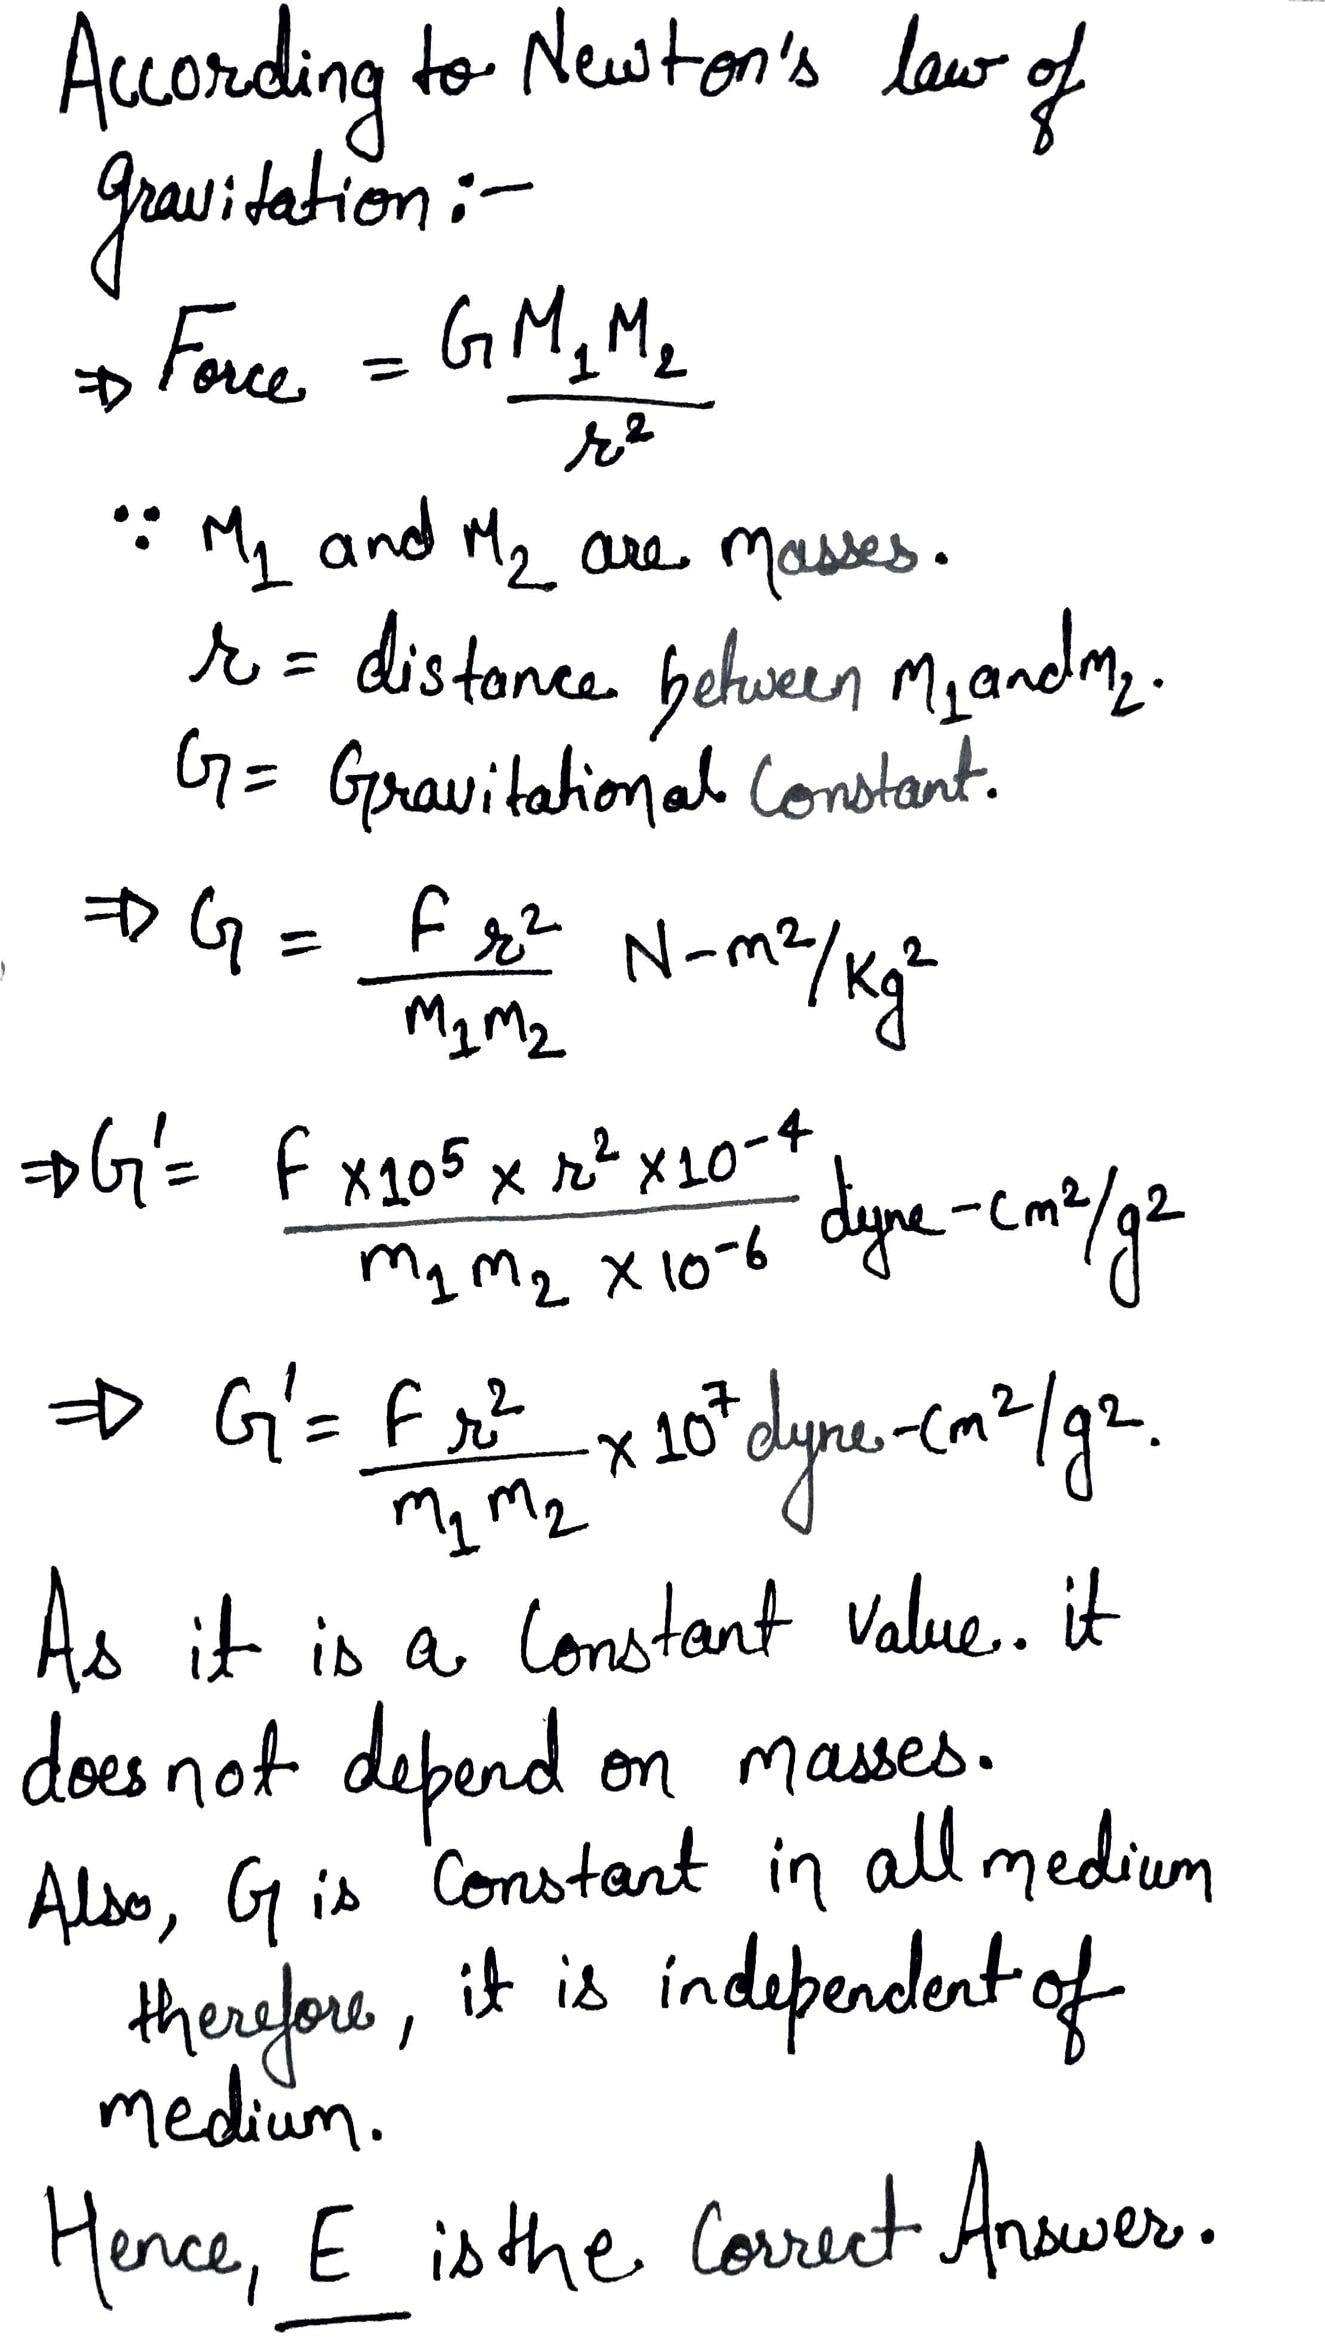 According to Newton's law of
gravitation :-
⇒ Force = G M₁ M₂ / r²
∵ M₁ and M₂ are masses.
r = distance between M₁ and M₂.
G = Gravitational Constant.
⇒ G = F r² / M₁ M₂ N-m²/Kg²
⇒ G' = F x 10⁵ x r² x 10⁻⁴ / m₁ m₂ x 10⁻⁶ dyne-cm²/g²
⇒ G' = F r² / m₁ m₂ x 10⁷ dyne-cm²/g².
As it is a Constant Value. it
does not depend on masses.
Also, G is Constant in all medium
therefore, it is independent of
medium.
Hence, E is the Correct Answer.